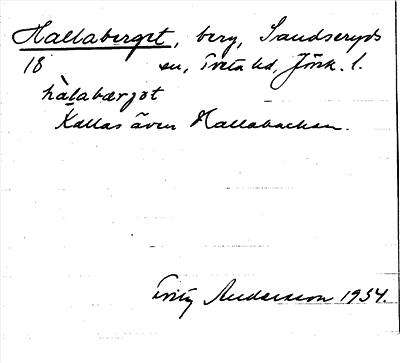 Hallaberget, berg, Sandseryds
18 sn, Tveta hd, Jönk. l.
hàlabærjət
Kallas även Hallabacken.
Fritz Andersson 1934.